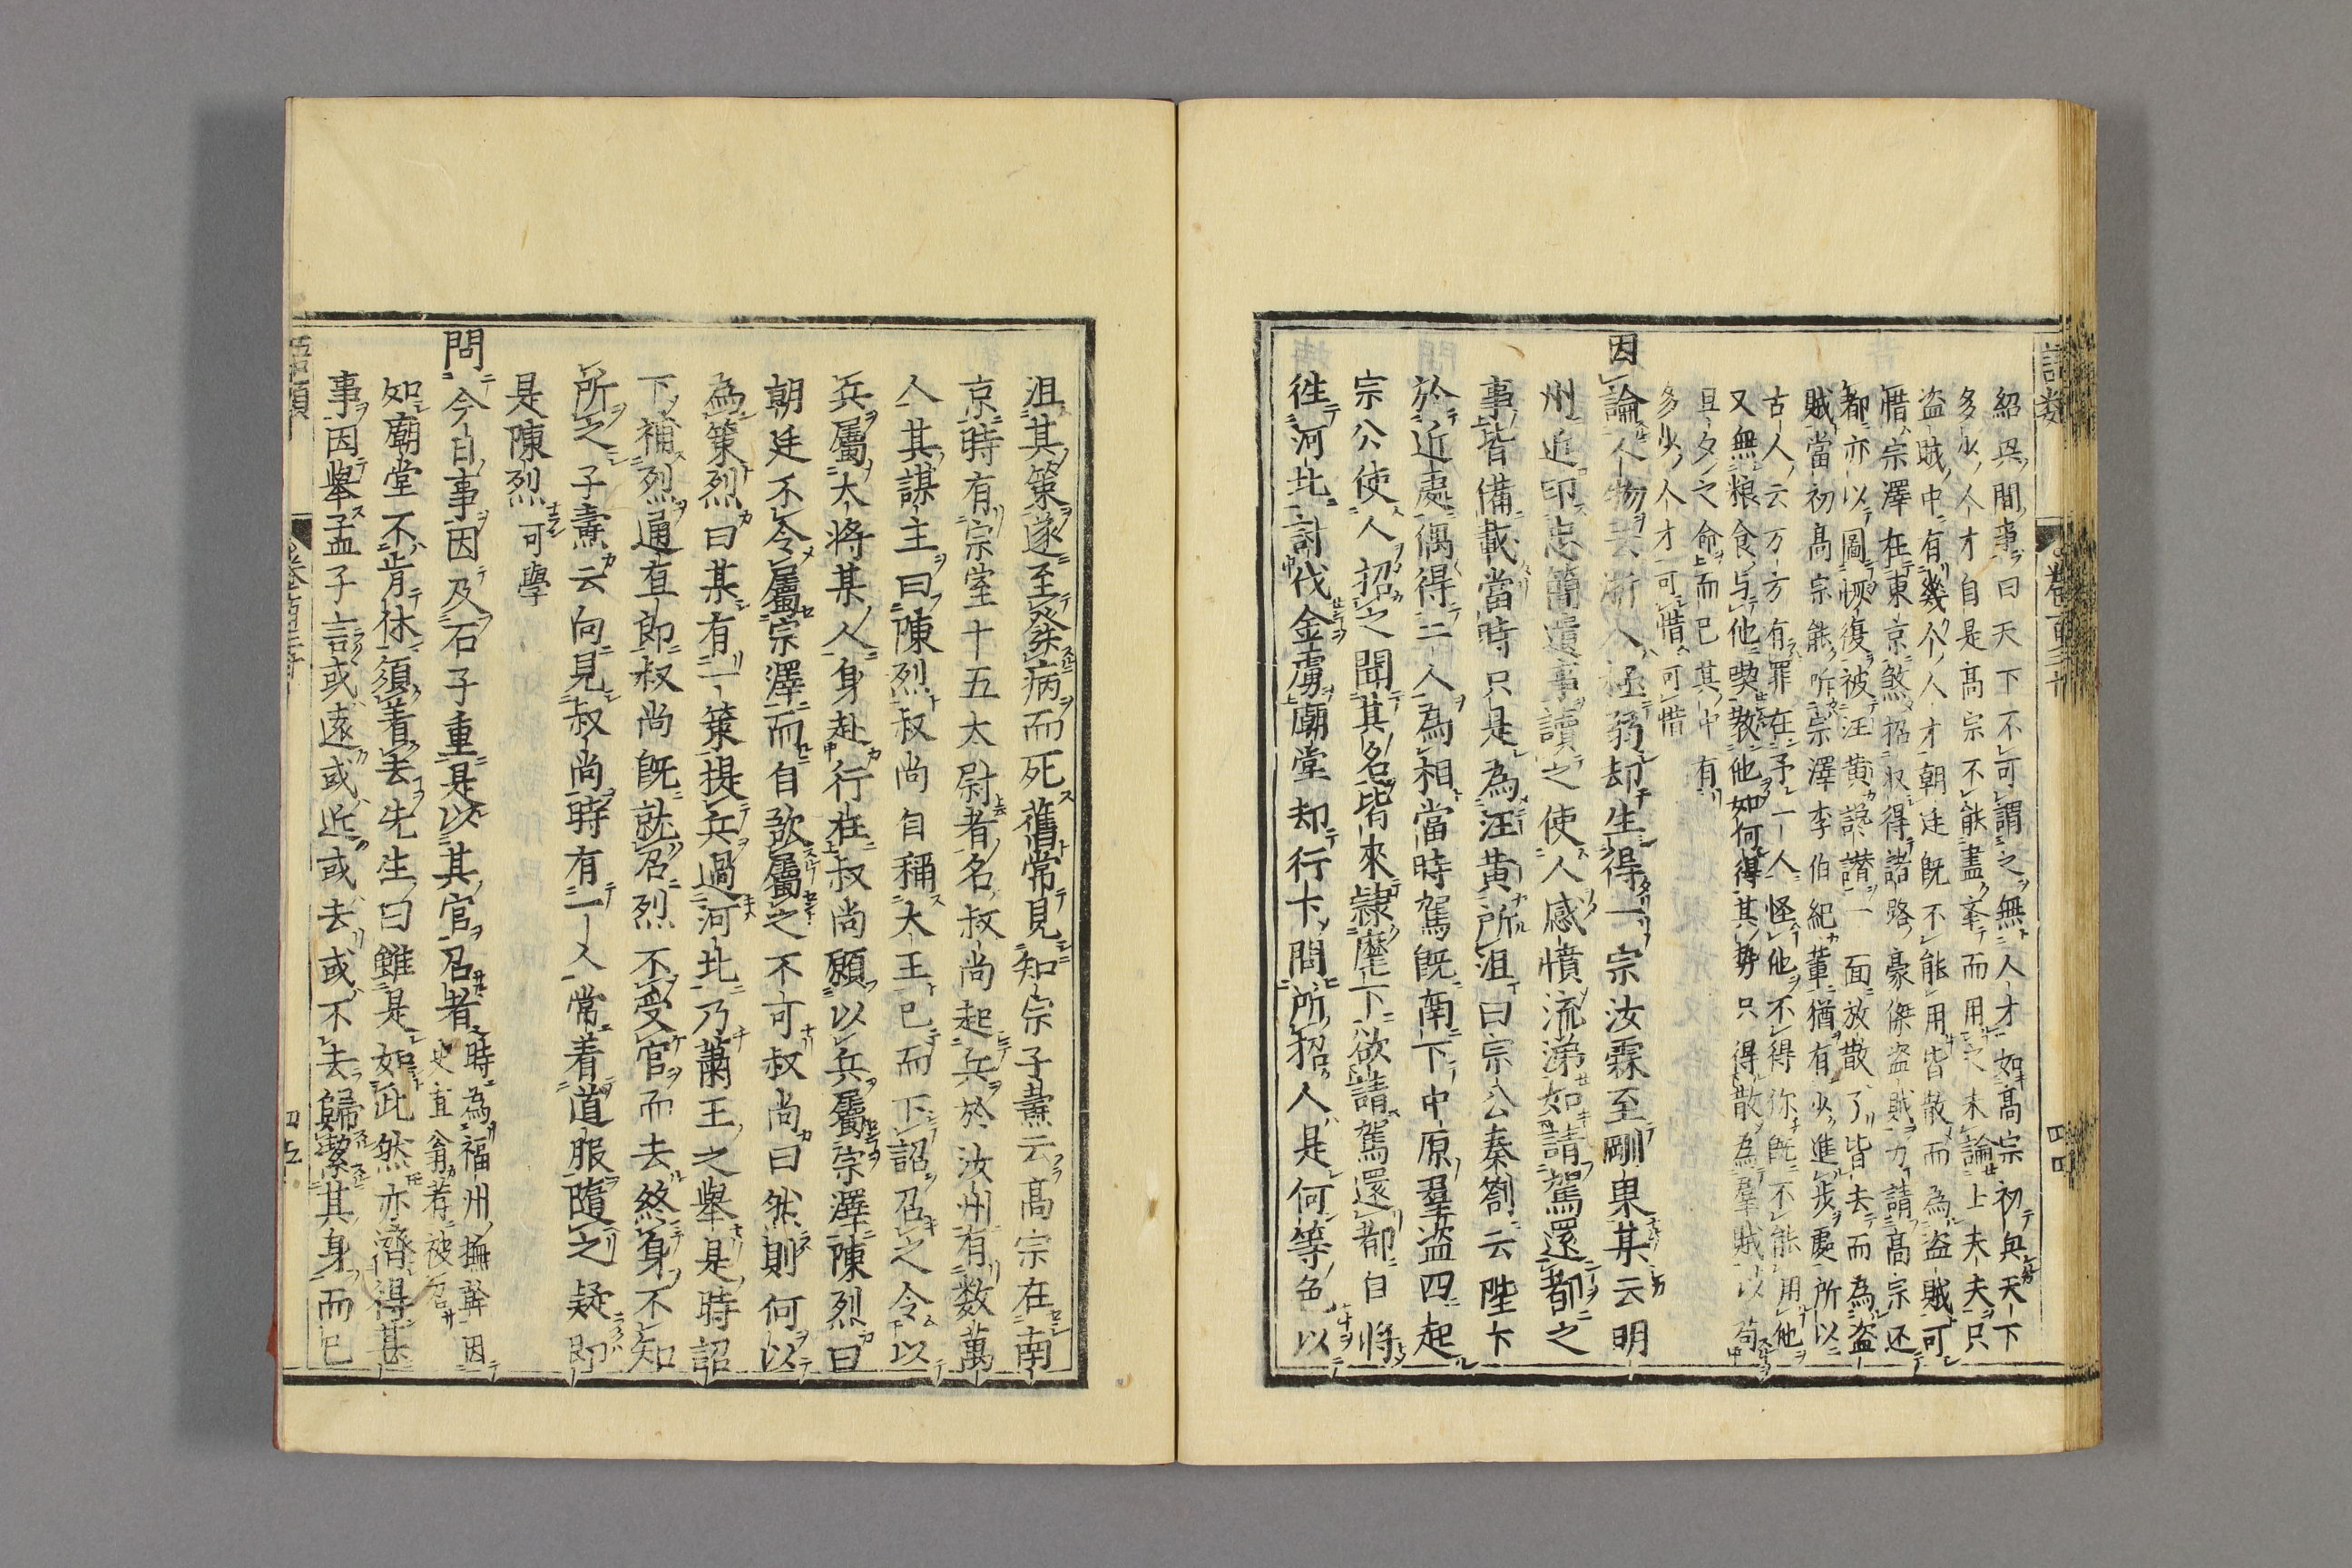 語類
卷百三十
四四
紹興間事曰天下不可謂之無人才如高宗初興天下
多少人才自是高宗不能盡挙而用之未論士大夫只
盗賊中有幾个人才朝廷既不能用皆散而為盗賊可
惜宗澤在東京煞招収得諸路豪傑盗賊力請高宗还
都亦以圖恢復被汪黄讒譖一面放散了皆去而為盗
賊當初高宗能听宗澤李伯紀輩猶有少進步處所以
古人云万方有罪在予一人怪他不得你既不能用他
又無粮食与他喫教他如何得其勢只得散為羣賊以苟
旦夕之命而已其中有
多少人才可惜可惜
因論人物云浙人極弱却生得一宗汝霖至剛果某云明
州近印忠簡遺事讀之使人感憤流涕如請駕還都之
事皆備載當時只是為汪黄所沮曰宗公奏劄云陛下
於近處偶得二人為相當時駕既南下中原羣盗四起
宗公使人招之聞其名皆來隷麾下欲請駕還都自將
徃河北討伐金虜廟堂却行下問所招人是何等色以
沮其策遂至發病而死舊常見知宗子燾云高宗在南
京時有宗室十五太尉者名叔尚起兵於汝州有数萬
人其謀主曰陳烈叔尚自稱大王已而下詔召之令以
兵屬大将某人身赴行在叔尚願以兵屬宗澤陳烈曰
朝廷不令屬宗澤而自欲屬之不可叔尚曰然則何以
為策烈曰某有一策提兵過河北乃藺王之舉是時詔
下補烈通直郎叔尚既就召烈不受官而去終身不知
所之子燾云向見叔尚時有一人常着道服隨之疑即
是陳烈可學
問今日事因及石子重是以其官召者時為福州撫幹因
史直翁荐被召
如廟堂不肯休須着去先生曰雖是如此然亦濟得甚
事因舉孟子言或遠或近或去或不去歸潔其身而已
語類
卷百三十
四五